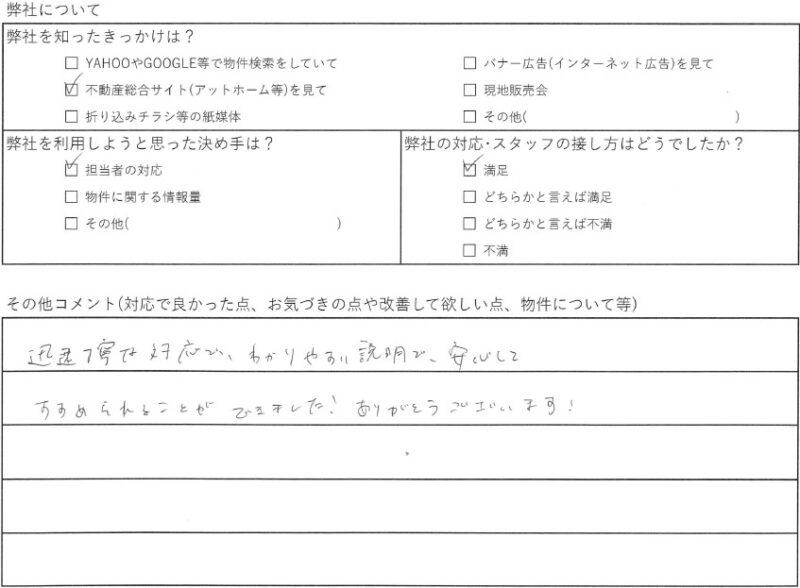 弊社について
弊社を知ったきっかけは？
□ YAHOOやGOOGLE等で物件検索をしていて
□ バナー広告(インターネット広告)を見て
☑ 不動産総合サイト(アットホーム等)を見て
□ 現地販売会
□ 折り込みチラシ等の紙媒体
□ その他( )
弊社を利用しようと思った決め手は？
☑ 担当者の対応
□ 物件に関する情報量
□ その他( )
弊社の対応・スタッフの接し方はどうでしたか？
☑ 満足
□ どちらかと言えば満足
□ どちらかと言えば不満
□ 不満
その他コメント(対応で良かった点、お気づきの点や改善して欲しい点、物件について等)
迅速丁寧な対応で、わかりやすい説明で、安心して
すすめられることができました！ありがとうございます！